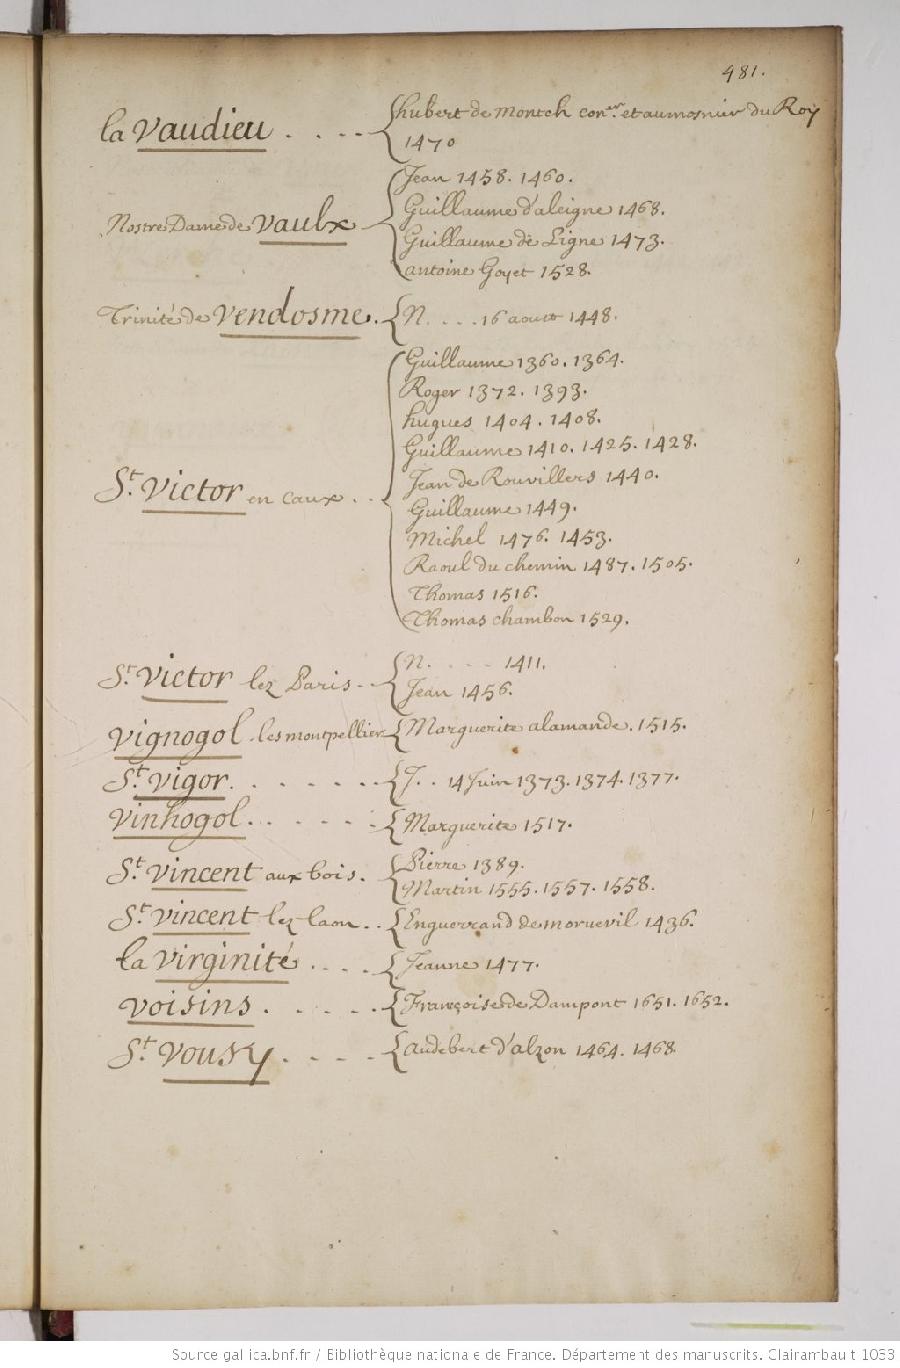 481.
la Vaudieu . . . . hubert de Montch con.er et aumosnier du Roy
1470
Jean 1458. 1460.
Guillaume d'aleigne 1468.
Nostre Dame de Vaulx
Guillaume de Ligne 1473.
antoine Goyet 1528.
Trinité de Vendosme. N. . . . 16 aoust 1448.
Guillaume 1360. 1364.
Roger 1372. 1393.
hugues 1404. 1408.
Guillaume 1410. 1425. 1428.
Jean de Rouvillers 1440.
St. Victor en Caux . .
Guillaume 1449.
Michel 1476. 1453.
Raoul du chemin 1487. 1505.
Thomas 1516.
Thomas chambon 1529.
N. . . . . 1411.
St. Victor lez Paris
Jean 1456.
Vignogol les montpellier Marguerite alamande. 1515.
St. Vigor. . . . . . . J. . 14 Juin 1373. 1374. 1377.
Vinhogol . . . . . Marguerite 1517.
Pierre 1389.
St. Vincent aux bois.
Martin 1555. 1557. 1558.
St. Vincent lez laon . . Enguerrand de moruevil 1436.
la Virginité . . . . Jeanne 1477.
Voisins . . . . . Françoise de Dampont 1651. 1652.
St. Vousy . . . . Audebert d'alzon 1464. 1468
Source gallica.bnf.fr / Bibliothèque nationale de France. Département des manuscrits. Clairambault 1033